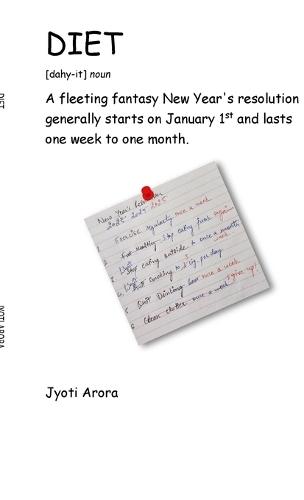 DIET
[dahy-it] noun
A fleeting fantasy New Year's resolution
generally starts on January 1st and lasts
one week to one month.
New Year's
2023 2024 2025
Exercise regularly once a week
Eat healthy Stop eating junk
Stop eating outside to once a month
Quit Smoking to 3 cig. per day
Quit Drinking once a week I give up!
Clean clutter once a week
Jyoti Arora
DIET
JYOTI ARORA